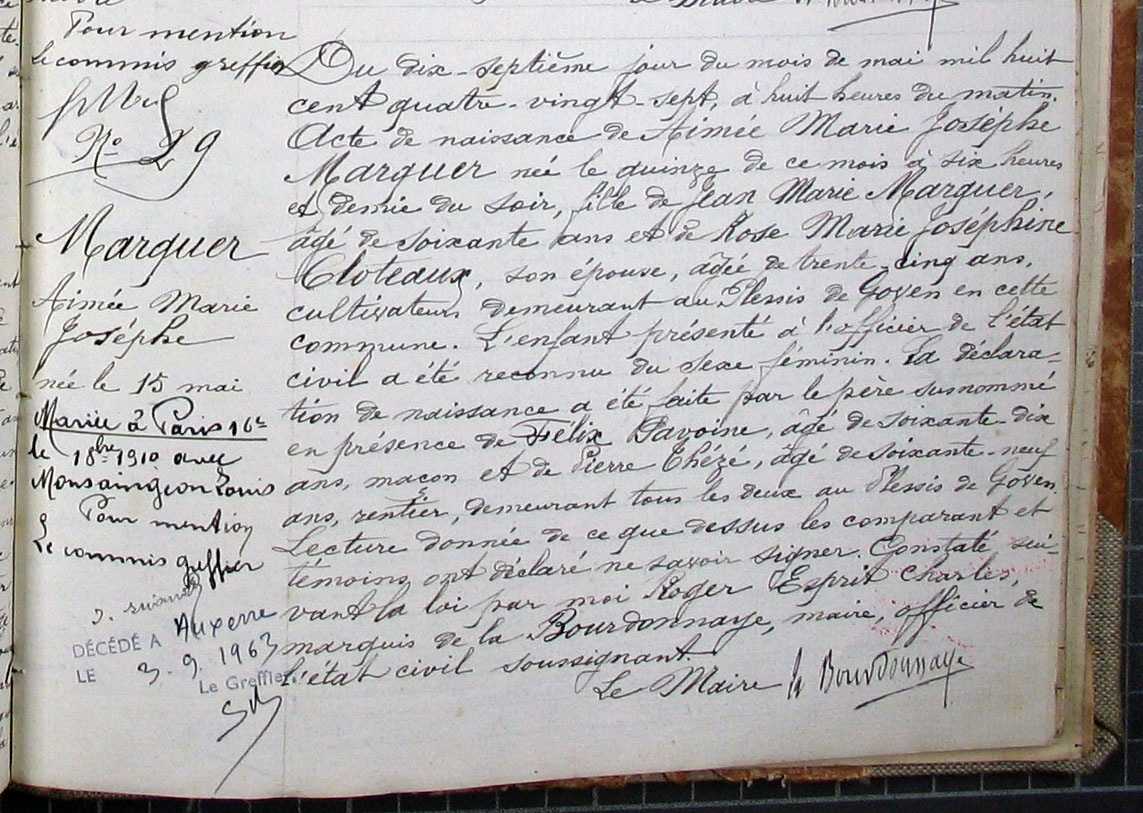 Pour mention
Le commis greffier
No 29
Marquer
Aimée Marie
Joséphe
née le 15 mai
Mariée à Paris 16e
le 18bre 1910 avec
Monsaingeon Louis
Pour mention
Le commis greffier
DÉCÉDÉ A Auxerre
LE 3.9.1963
Le Greffier.
Du dix-septième jour du mois de mai mil huit
cent quatre-vingt-sept, à huit heures du matin.
Acte de naissance de Aimée Marie Joséphe
Marquer née le quinze de ce mois à six heures
et demie du soir, fille de Jean Marie Marquer,
âgé de soixante ans et de Rose Marie Joséphine
Cloteaux, son épouse, âgée de trente-cinq ans,
cultivateurs demeurant au Plessis de Goven en cette
commune. L'enfant présenté à l'officier de l'état
civil a été reconnu du sexe féminin. La déclara-
tion de naissance a été faite par le père susnommé
en présence de Félix Pavoine, âgé de soixante-dix
ans, maçon et de Pierre Chézé, âgé de soixante-neuf
ans, rentier, demeurant tous les deux au Plessis de Goven.
Lecture donnée de ce que dessus les comparant et
témoins ont déclaré ne savoir signer. Constaté sui-
vant la loi par moi Roger Esprit Charles,
marquis de la Bourdonnaye, maire, officier de
l'état civil soussignant.
Le Maire la Bourdonnaye